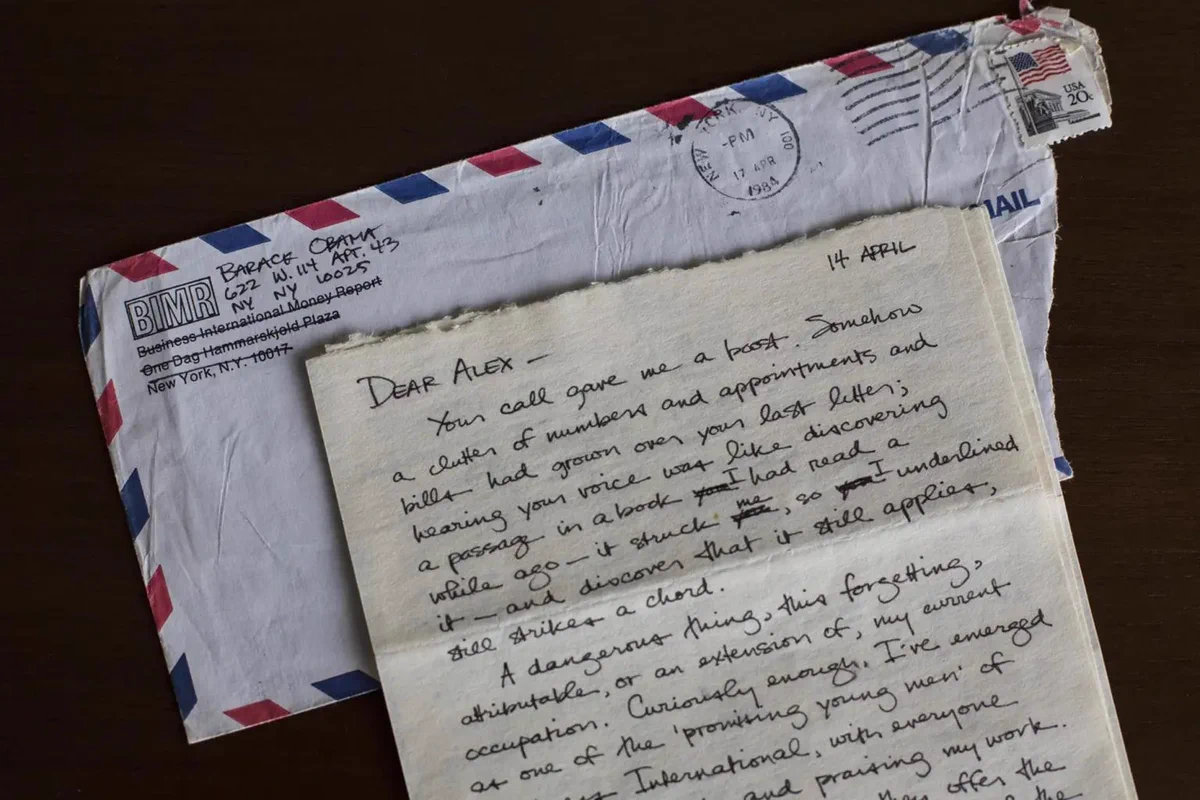 USA
20c
NEW YORK, NY 100
-PM
17 APR
1984
MAIL
BARACK OBAMA
622 W. 114 APT. 43
NY NY 10025
BIMR
Business International Money Report
One Dag Hammarskjold Plaza
New York, N.Y. 10017
14 APRIL
DEAR ALEX –
Your call gave me a boost. Somehow
a clutter of numbers and appointments and
bills had grown over your last letter;
hearing your voice was like discovering
a passage in a book you I had read a
while ago – it struck me, so you I underlined
it – and discover that it still applies,
still strikes a chord.
A dangerous thing, this forgetting,
attributable, or an extension of, my current
occupation. Curiously enough, I've emerged
as one of the 'promising young men' of
International, with everyone
and praising my work.
offer the
the